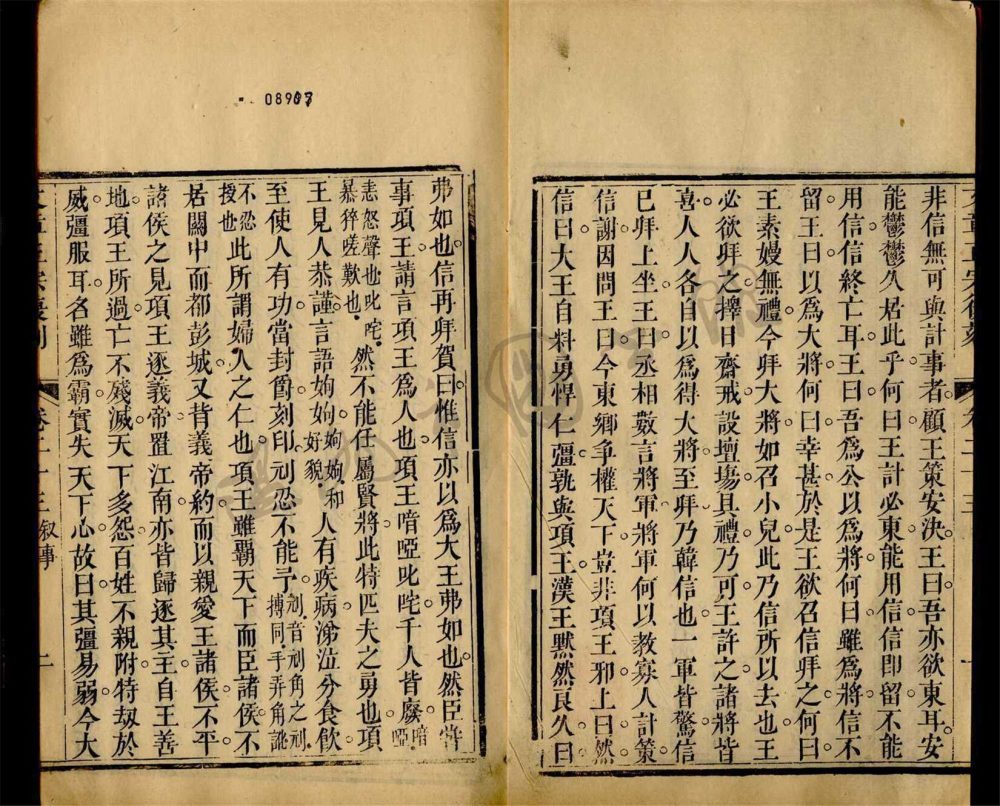 08907
文章正宗復刻
卷二十三
非信無可與計事者顧王策安決王曰吾亦欲東耳安
能鬱鬱久居此乎何曰王計必東能用信信即留不能
用信信終亡耳王曰吾爲公以爲將何曰雖爲將信不
留王曰以爲大將何曰幸甚於是王欲召信拜之何曰
王素嫚無禮今拜大將如召小兒此乃信所以去也王
必欲拜之擇日齋戒設壇場具禮乃可王許之諸將皆
喜人人各自以爲得大將至拜乃韓信也一軍皆驚信
已拜上坐王曰丞相數言將軍將軍何以教寡人計策
信謝因問王曰今東鄉爭權天下豈非項王邪上曰然
信曰大王自料勇悍仁彊孰與項王漢王黙然良久曰
弗如也信再拜賀曰惟信亦以爲大王弗如也然臣嘗
事項王請言項王爲人也項王喑啞叱咤千人皆廢喑啞
恚怒聲也叱咤暴猝嗟歎也然不能任屬賢將此特匹夫之勇也項
王見人恭謹言語姁姁姁姁和好貌人有疾病涕泣分食飲
至使人有功當封爵刻印刓忍不能予刓音刓角之刓摶同手弄角訛
不忍授也此所謂婦人之仁也項王雖霸天下而臣諸侯不
居關中而都彭城又背義帝約而以親愛王諸侯不平
諸侯之見項王逐義帝置江南亦皆歸逐其主自王善
地項王所過亡不殘滅天下多怨百姓不親附特劫於
威彊服耳名雖爲霸實失天下心故曰其彊易弱今大
卷二十三 叙事 二